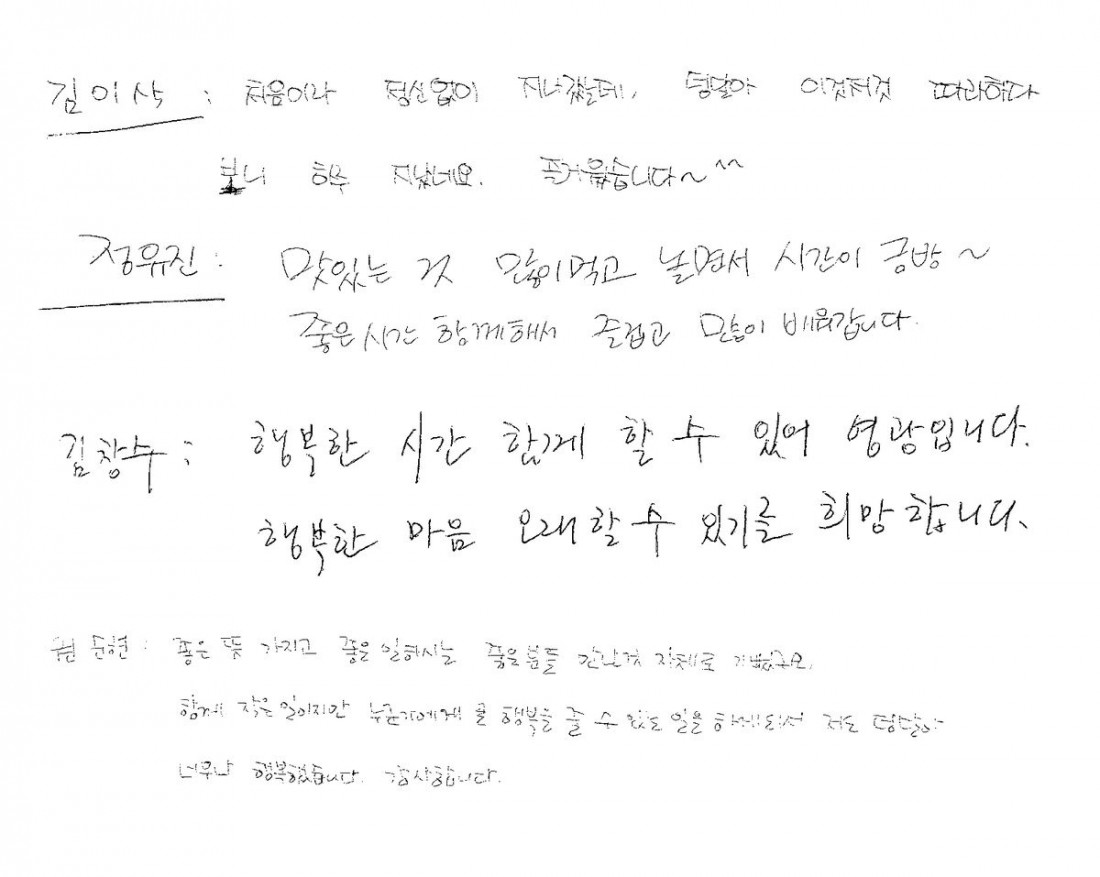 김이삭 : 처음이라 정신없이 지나갔는데, 덩달아 이것저것 따라하다
보니 하루 지났네요. 즐거웠습니다~^^
정유진 : 맛있는 것 많이먹고 놀면서 시간이 금방~
좋은시간 함께해서 즐겁고 많이 배워갑니다.
김창수 : 행복한 시간 함께 할 수 있어 영광입니다.
행복한 마음 오래할 수 있기를 희망합니다.
문현 : 좋은 뜻 가지고 좋은 일하시는 좋은분들 만난것 자체로 기뻤구요,
함께 작은일이지만 누군가에게 행복을 줄 수 있는 일을 하게되서 저도 덩달아
너무나 행복했습니다. 감사합니다.